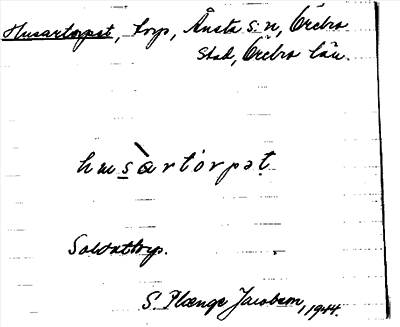 Husartorpet, torp, Ånsta s:n, Örebro
stad, Örebro län.
husàrtorpət
Soldattorp.
S. Plænge Jacobson, 1944.